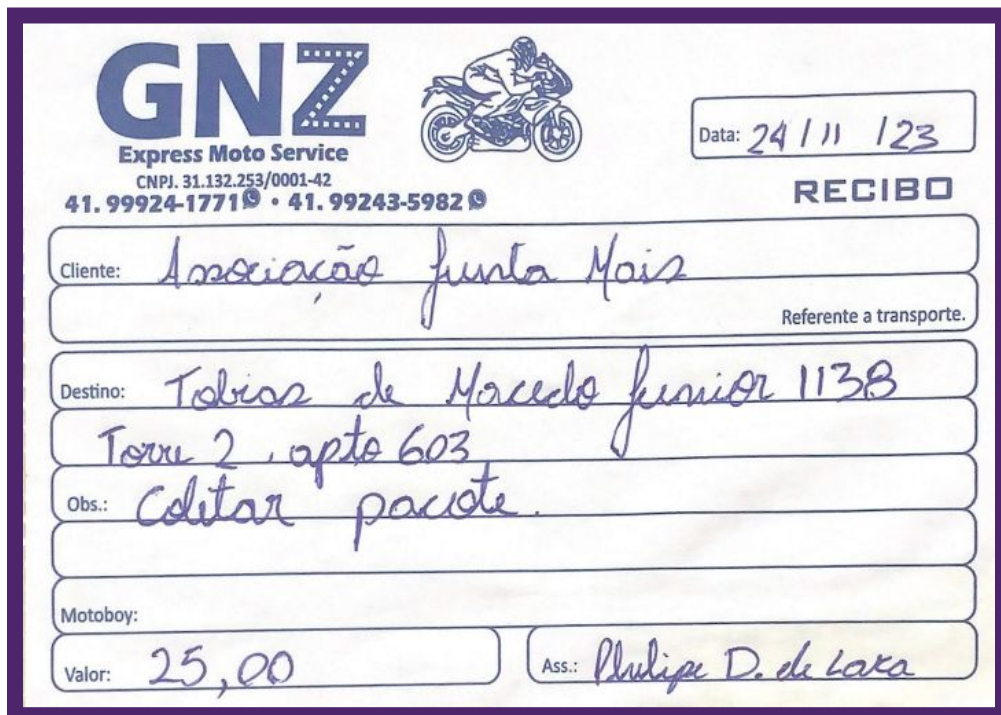 GNZ
Express Moto Service
CNPJ. 31.132.253/0001-42
41. 99924-1771 • 41. 99243-5982
Data: 24 / 11 / 23
RECIBO
Cliente: Associação Junta Mais
Referente a transporte.
Destino: Tobias de Macedo Junior 1138
Torre 2, apto 603
Obs.: Coletar pacote.
Motoboy:
Valor: 25,00
Ass.: Phelipe D. de Lara